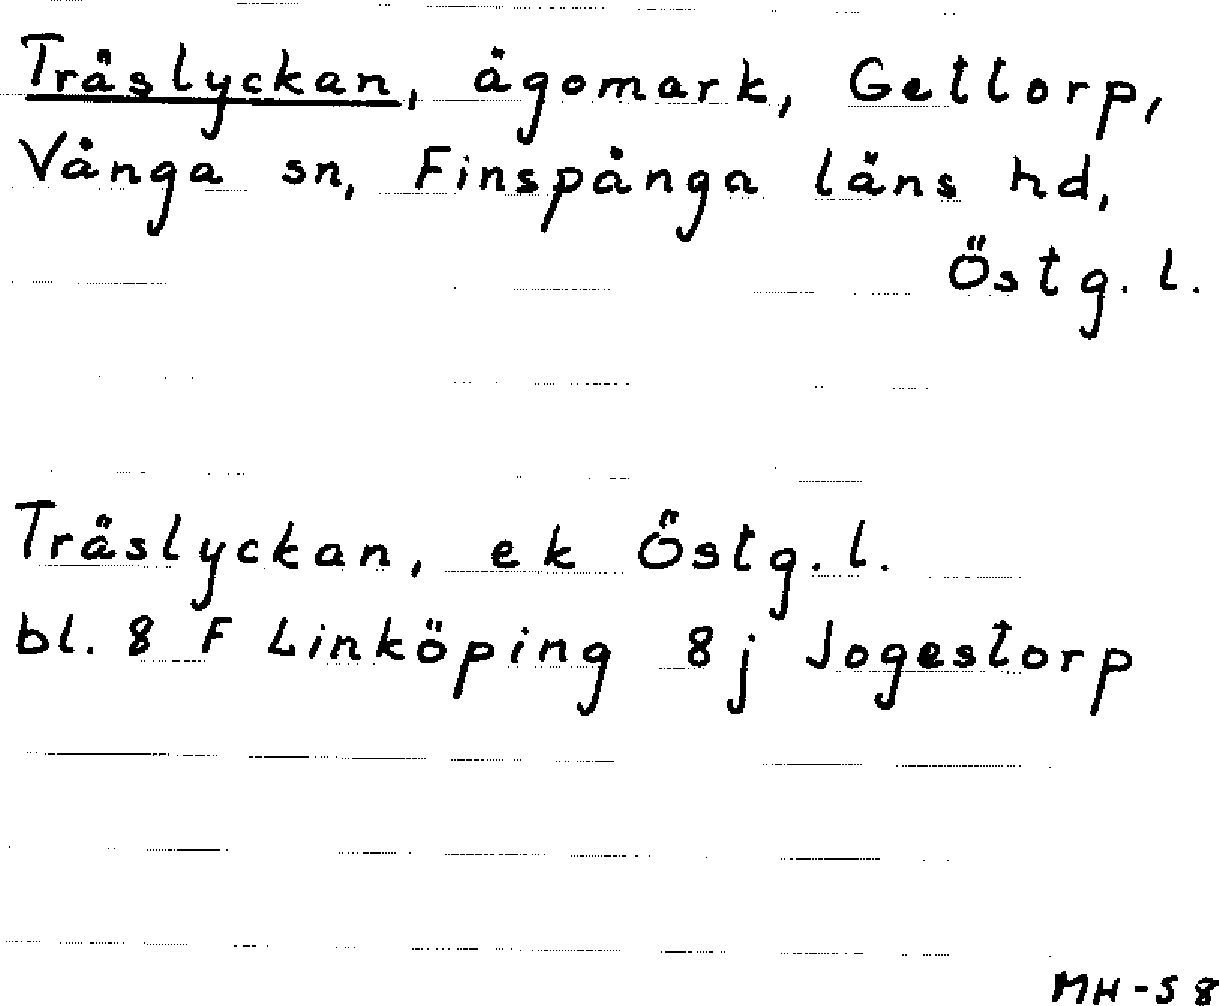 Träslyckan, ägomark, Gettorp,
Vånga sn, Finspånga läns hd,
Östg. l.
Träslyckan, ek Östg. l.
bl. 8 F Linköping 8 j Jogestorp
MH-58